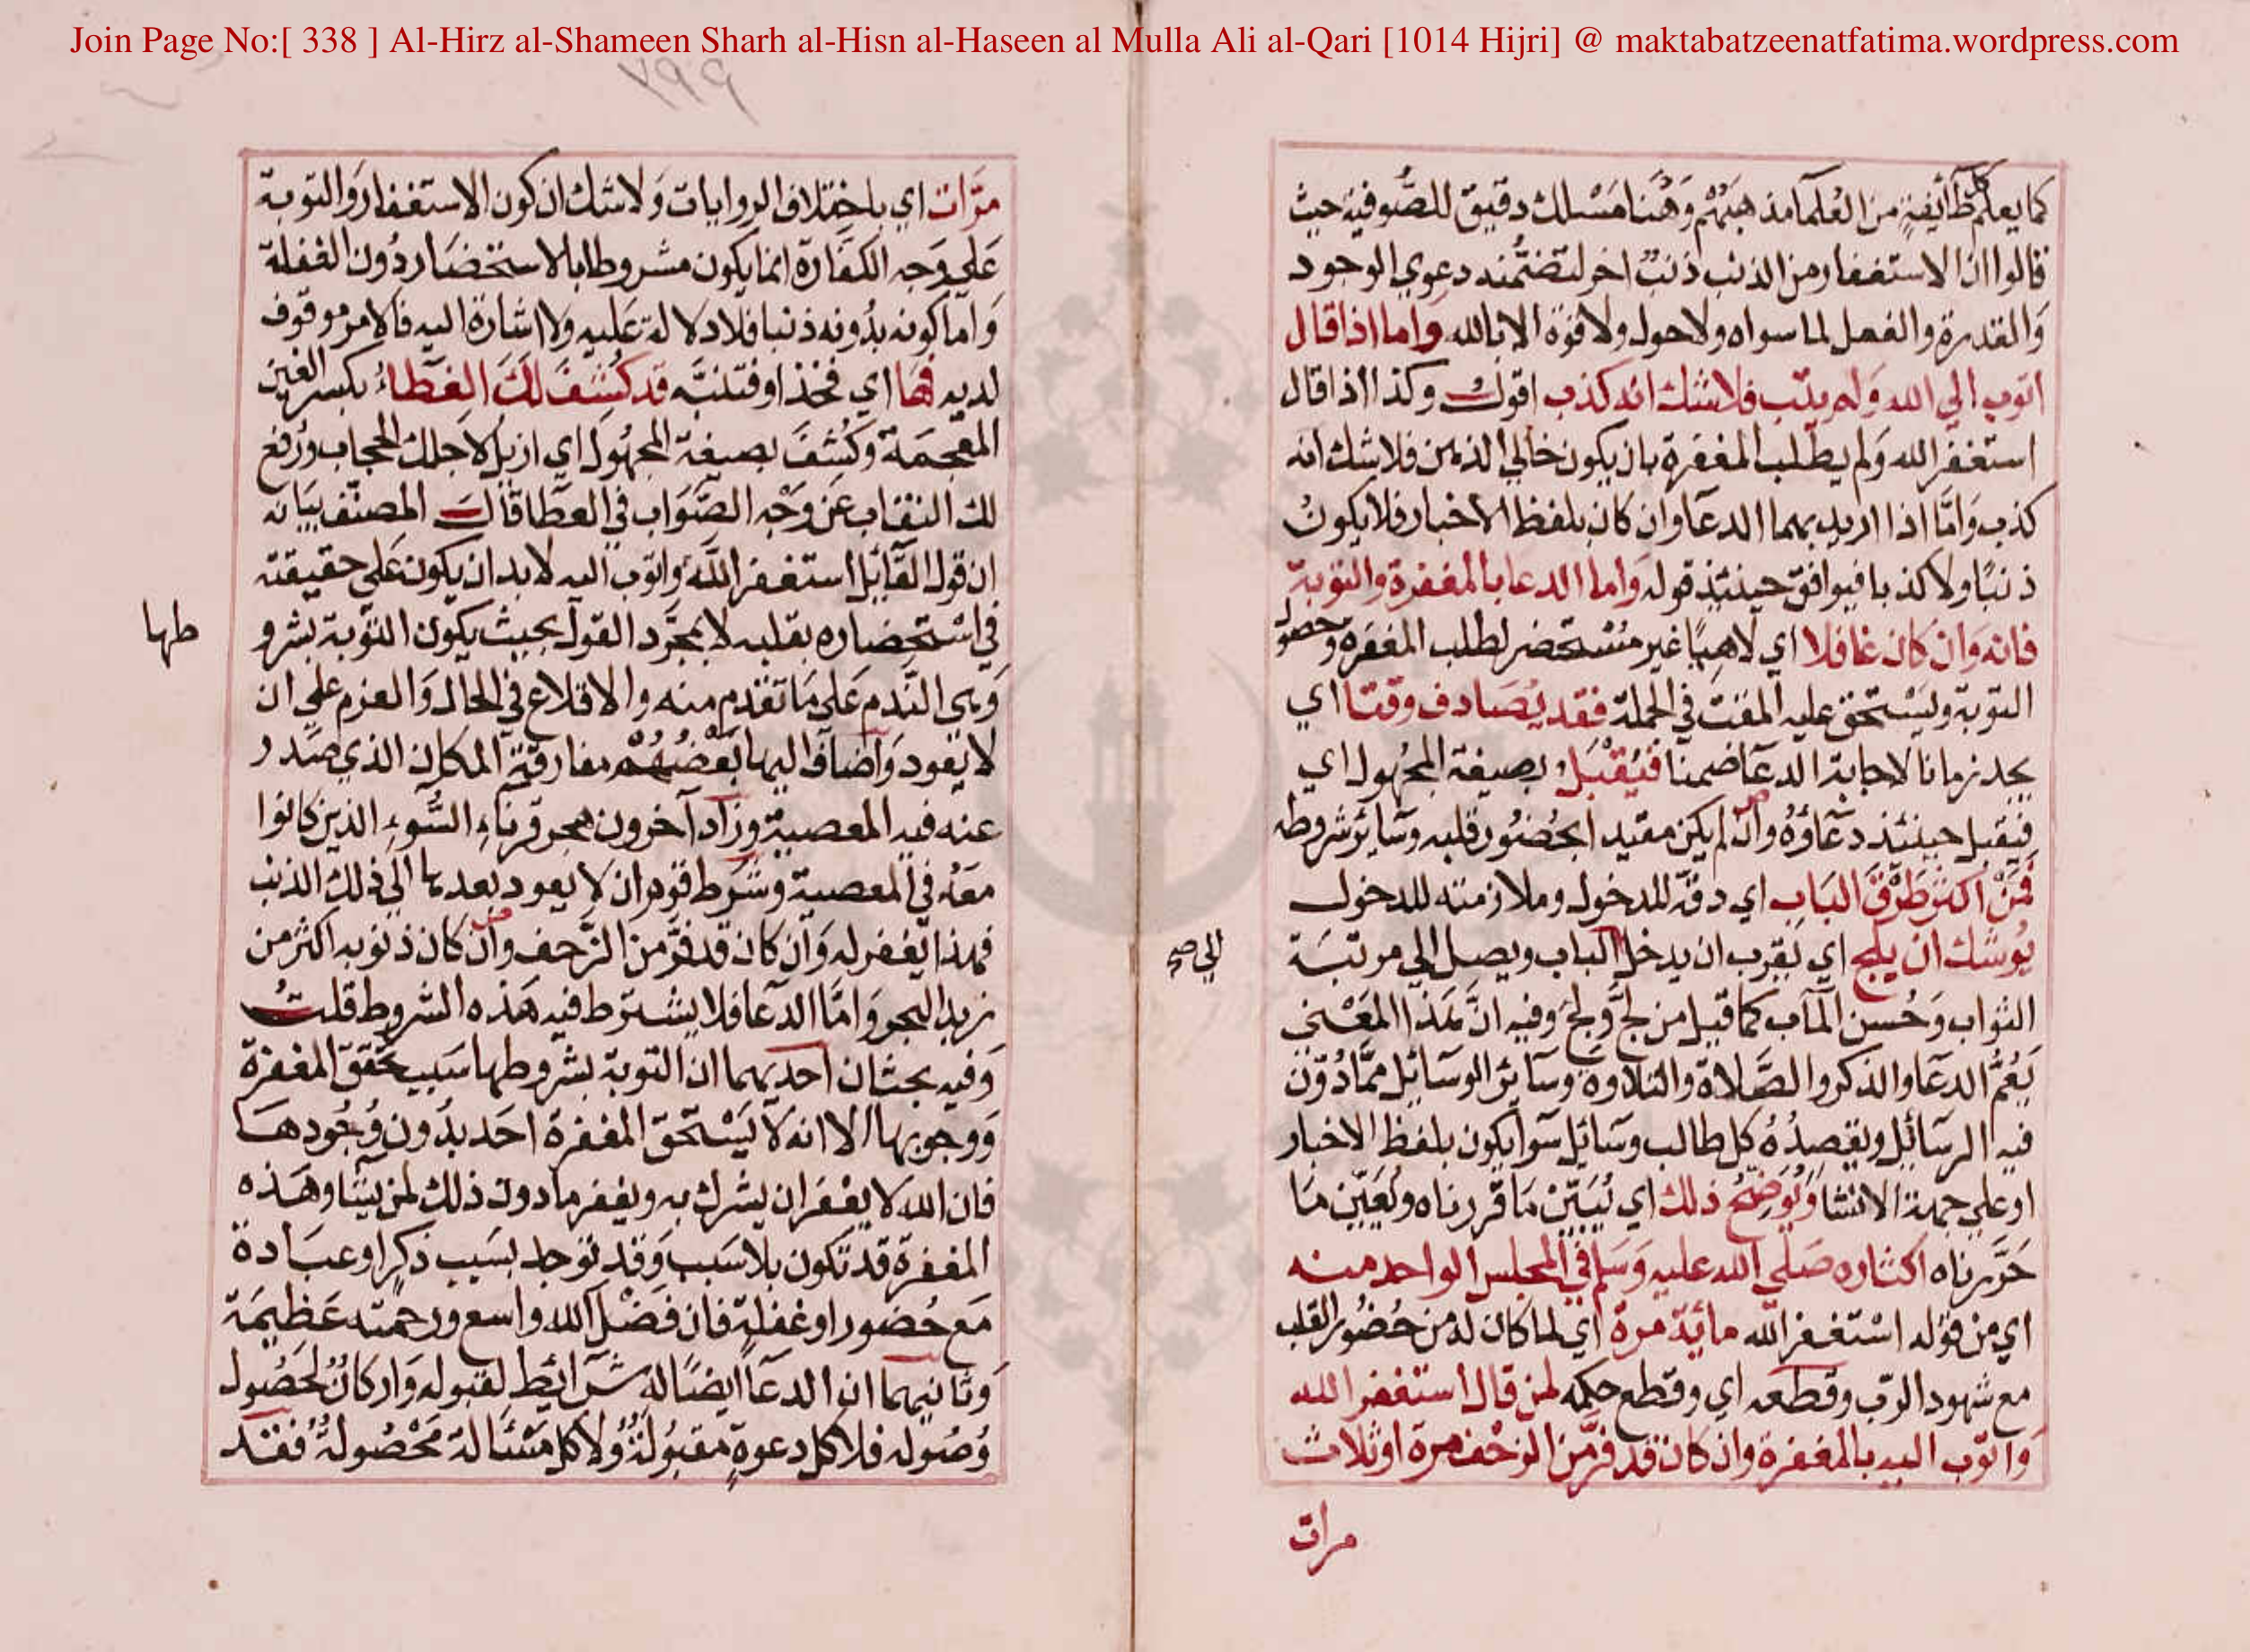 Join Page No:[ 338 ] Al-Hirz al-Shameen Sharh al-Hisn al-Haseen al Mulla Ali al-Qari [1014 Hijri] @ maktabatzeenatfatima.wordpress.com
كما يعلم كل طآئفةٍ من العُلمآ مذهبَهُم وَهُنا مَسْلك دقيق للصُّوفيه حيث
قالوا ان الاستغفار من الذنب ذنبٌ اخر لتضمُّنه دعوي الوجود
وَالقدرة والفعل لما سواه ولا حول ولا قوة الا بالله واما اذا قال
اتوب الي الله وَلم يتب فلا شك انه كذب اقول وكذا اذا قال
استغفر الله وَلم يطلب المغفرة بان يكون خالي الذهن فلا شك انه
كذب وَامَّا اذا اريد بهما الدعآ وان كان بلفظ الاخبار فلا يكون
ذنبًا ولا كذبا فيوافق حينئذ قوله وَاما الدعا بالمغفرة والتوبة
فانه وَان كان غافلا اي لاهِيًا غير مُسْتحضر لطلب المغفره وحصول
التوبة ويَسْتحق عليه المقت في الجملة فقد يُصَادف وقتا اي
يجد زمانا لاجابة الدعآ ضمنا فيُقْبَل بصيغة المجهُول اي
فيَقبل حينئذ دعَآؤهُ وان لم يكن مقيدا بحُضُور قلبه وسَآير شروطه
فَمَنْ اكثر طَرْقَ البَاب اي دقّه للدخول وملازمته للدخول
يُوشك ان يلج اي يَقرب ان يدخل الباب ويصل الي مرتبَة
الي صح
الثواب وَحُسن المآب كما قيل من لجَّ وَلجَ وفيه انَّ هَذا المَعْني
يَعُمُّ الدعَآ والذكر والصَّلاة والتلاوة وسَآئر الوسَآئل ممَّا دُوّن
فيه الرسَآئل ويَقصِدُهُ كل طالب وسَآئل سَوآ يكون بلفظ الاخبار
او علي جهة الانشا وَيُوَضّحُ ذلك اي يُبَيّنُ مَا قررناه ويُعَيّن مَا
حَرَّرناه اكثاره صَلّي الله عليه وَسَلم في المجلس الواحد منه
اي من قوله اسْتغفر الله مائة مرة اي لما كان له من حُضُور القلب
مع شهود الربّ وقطعه اي وقطع حكمه لمن قال استغفر الله
وَاتوب اليه بالمغفرة وان كان قد فرَّ من الزحْف مرة او ثلاث
مرات
٧٩٩
مَرَّات اي باختلاف الروايات وَلا شك ان كون الاستغفار وَالتوبة
عَلي وَجه الكفّارة انما يكون مشروطا بالاستحضَار دُون الغفلة
وَاما كونه بدُونه ذنبا فلا دلالة عَليه ولا اشارة اليه فالامر موقوف
لديه فها اي فخذ او فتنبّه قد كُشِفَ لَكَ الغطآءُ بكسر الغين
المعجمَة وَكُشفَ بصيغة المجهُول اي ازيل لاجلك الحجاب ورُفع
لك النقاب عَن وَجْه الصَّوَاب في العطآ قال المصنّف بيَانه
ان قول القآئل استغفر اللّه وَاتوب اليه لا بد ان يكون عَلي حقيقته
في اسْتحضاره بقلبه لا بمجَرّد القول بحيث يكون التوبة بشرو
طها
وَهي النَّدم عَلي مَا تقدم منه والاقلاع في الحال وَالعزم علي ان
لا يعود وَاضاف اليها بَعْضُهُم مفارقة المكان الذي صَدر
عنه فيه المعصية وزاد آخرون هجر قرنآء السُّوء الذين كانوا
معَهُ في المعصية وشرَط قوم ان لا يعود بعدها الي ذلك الذنب
فهذا يُغفر له وَان كان قد فرَّ من الزَّحف وان كان ذنوبه اكثر من
زبد البحر وَامَّا الدعآ فلا يشترط فيه هَذه الشروط قلتُ
وَفيه بحثان احديهما ان التوبة بشروطها سَبب تحقق المغفرة
وَوجوبها الا انه لا يَسْتحق المغفرة احَد بدُون وُجُودهَا
فان الله لا يغفر ان يشرك به ويغفر ما دون ذلك لمن يشآ وهَذه
المغفرة قد تكون بلا سَبب وَقد توجد بسَبب ذكر او عبَادة
مَع حُضور او غفلة فان فضْل الله واسع ورحمته عَظيمَة
وَثانيهما ان الدعآ ايضًا له شرآئط لقبوله وَاركان لحُصُول
وُصُوله فلا كل دعوةٍ مقبُولةٌ وَلا كل مَسْئلة مَحْصُولةٌ فقد